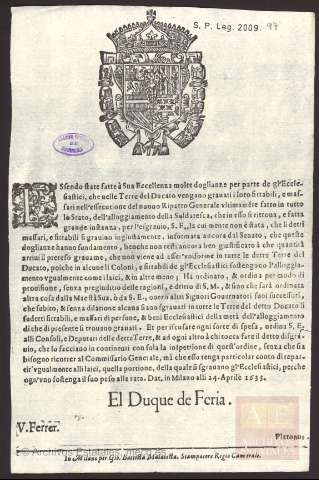 S. P. Leg. 2009. 97
ESsendo state fatte à Sua Eccellenza molte doglianze per parte de gl'Eccle-
siastici, che nelle Terre del Ducato vengano gravati i loro fittabili, e mas-
sari nell'essecutione del nuovo Ripatto Generale ultimamẽte fatto in tutto
lo Stato, dell'alloggiamento della Soldatesca, che in esso si ritroua, e fatta
grande instanza, per l'esgrauio, S. E., la cui mente non è stata, che li detti
massari, e fittabili si grauino ingiustamente, informata ancora dal Senato, che queste
doglianze hanno fundamento, benche non resti ancora ben giustificato à che quantità
arriui il preteso grauame, che non viene ad esser uniforme in tutte le dette Terre del
Ducato, poiche in alcune li Coloni, e fittabili de gl'Ecclesiastici sostengono l'alloggia-
mento vgualmente come i laici, & in altre meno; Hà ordinato, & ordina per modo di
prouisione, senza pregiuditio delle ragioni, e dritto di S. M., & sino che sarà ordinata
altra cosa dalla Maestà Sua, ò da S. E., ouero alli Signori Gouernatori suoi successori,
che subito, & senza dilatione alcuna siano sgrauati in tutte le Terre del detto Ducato li
sudetti fittabili, e massari di persone, & beni Ecclesiastici della metà dell'alloggiamento
di che di presente si trouano grauati. Et per iscusare ogni sorte di spesa, ordina S. E.
alli Consoli, e Deputati delle dette Terre, & ad ogni altro à chi tocca farsi il detto disgra-
uio, che lo facciano in continenti con sola la inspettione di quest'ordine, senza che sia
bisogno ricorrer al Commissario Generale, mà che esso tenga particolar conto di repar-
tir vgualmente alli laici, quella portione, della quale si sgrauano gl'Ecclesiastici, perche
ogn'vno sostenga il suo peso alla rata. Dat. in Milano alli 24. Aprile 1633.
El Duque de Feria.
V. Ferrer.
Platonus.
In Milano per Gio. Battista Malatesta, Stampatore Regio Camerale.
© Archivos Estatales, mecd.es